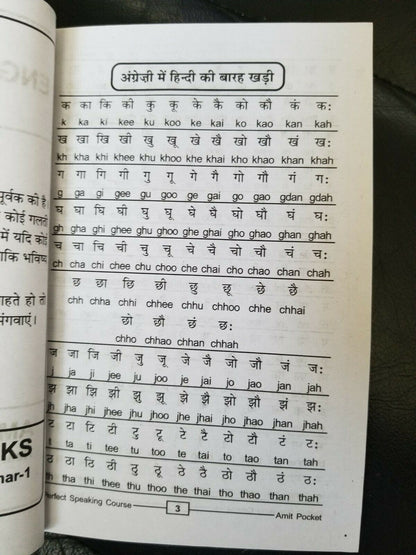 अंग्रेज़ी में हिन्दी की बारह खड़ी
क का कि की कु कू के कै को कौ कं कः
k ka ki kee ku koo ke kai ko kao kan kah
ख खा खि खी खु खू खे खै खो खौ खं खः
kh kha khi khee khu khoo khe khai kho khao khan khah
ग गा गि गी गु गू गे गै गो गौ गं गः
g ga gi gee gu goo ge gai go gao gdan gdah
घ घा घि घी घु घू घे घै घो घौ घं घः
gh gha ghi ghee ghu ghoo ghe ghai gho ghao ghan ghah
च चा चि ची चु चू चे चै चो चौ चं चः
ch cha chi chee chu choo che chai cho chao chan chah
छ छा छि छी छु छू छे छै
chh chha chhi chhee chhu chhoo chhe chhai
छो छौ छं छः
chho chhao chhan chhah
ज जा जि जी जु जू जे जै जो जौ जं जः
j ja ji jee ju joo je jai jo jao jan jah
झ झा झि झी झु झू झे झै झो झौ झं झः
jh jha jhi jhee jhu jhoo jhe jhai jho jhao jhan jhah
ट टा टि टी टु टू टे टै टो टौ टं टः
t ta ti tee tu too te tai to tao tan tah
ठ ठा ठि ठी ठु ठू ठे ठै ठो ठौ ठं ठः
th tha thi thee thu thoo the thai tho thao than thah
Perfect Speaking Course
3
Amit Pocket
की है
कोई
में यदि
भविष्य
चाहते हो तो
मंगवाएं।
KS
ar-1